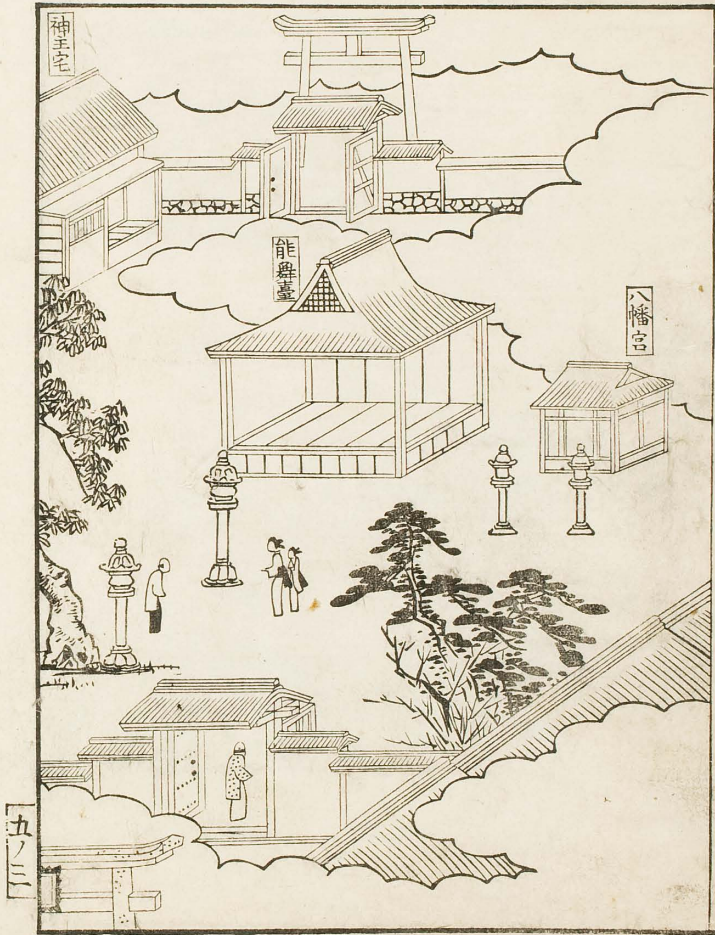 神主宅
能舞臺
八幡宮
五ノ三